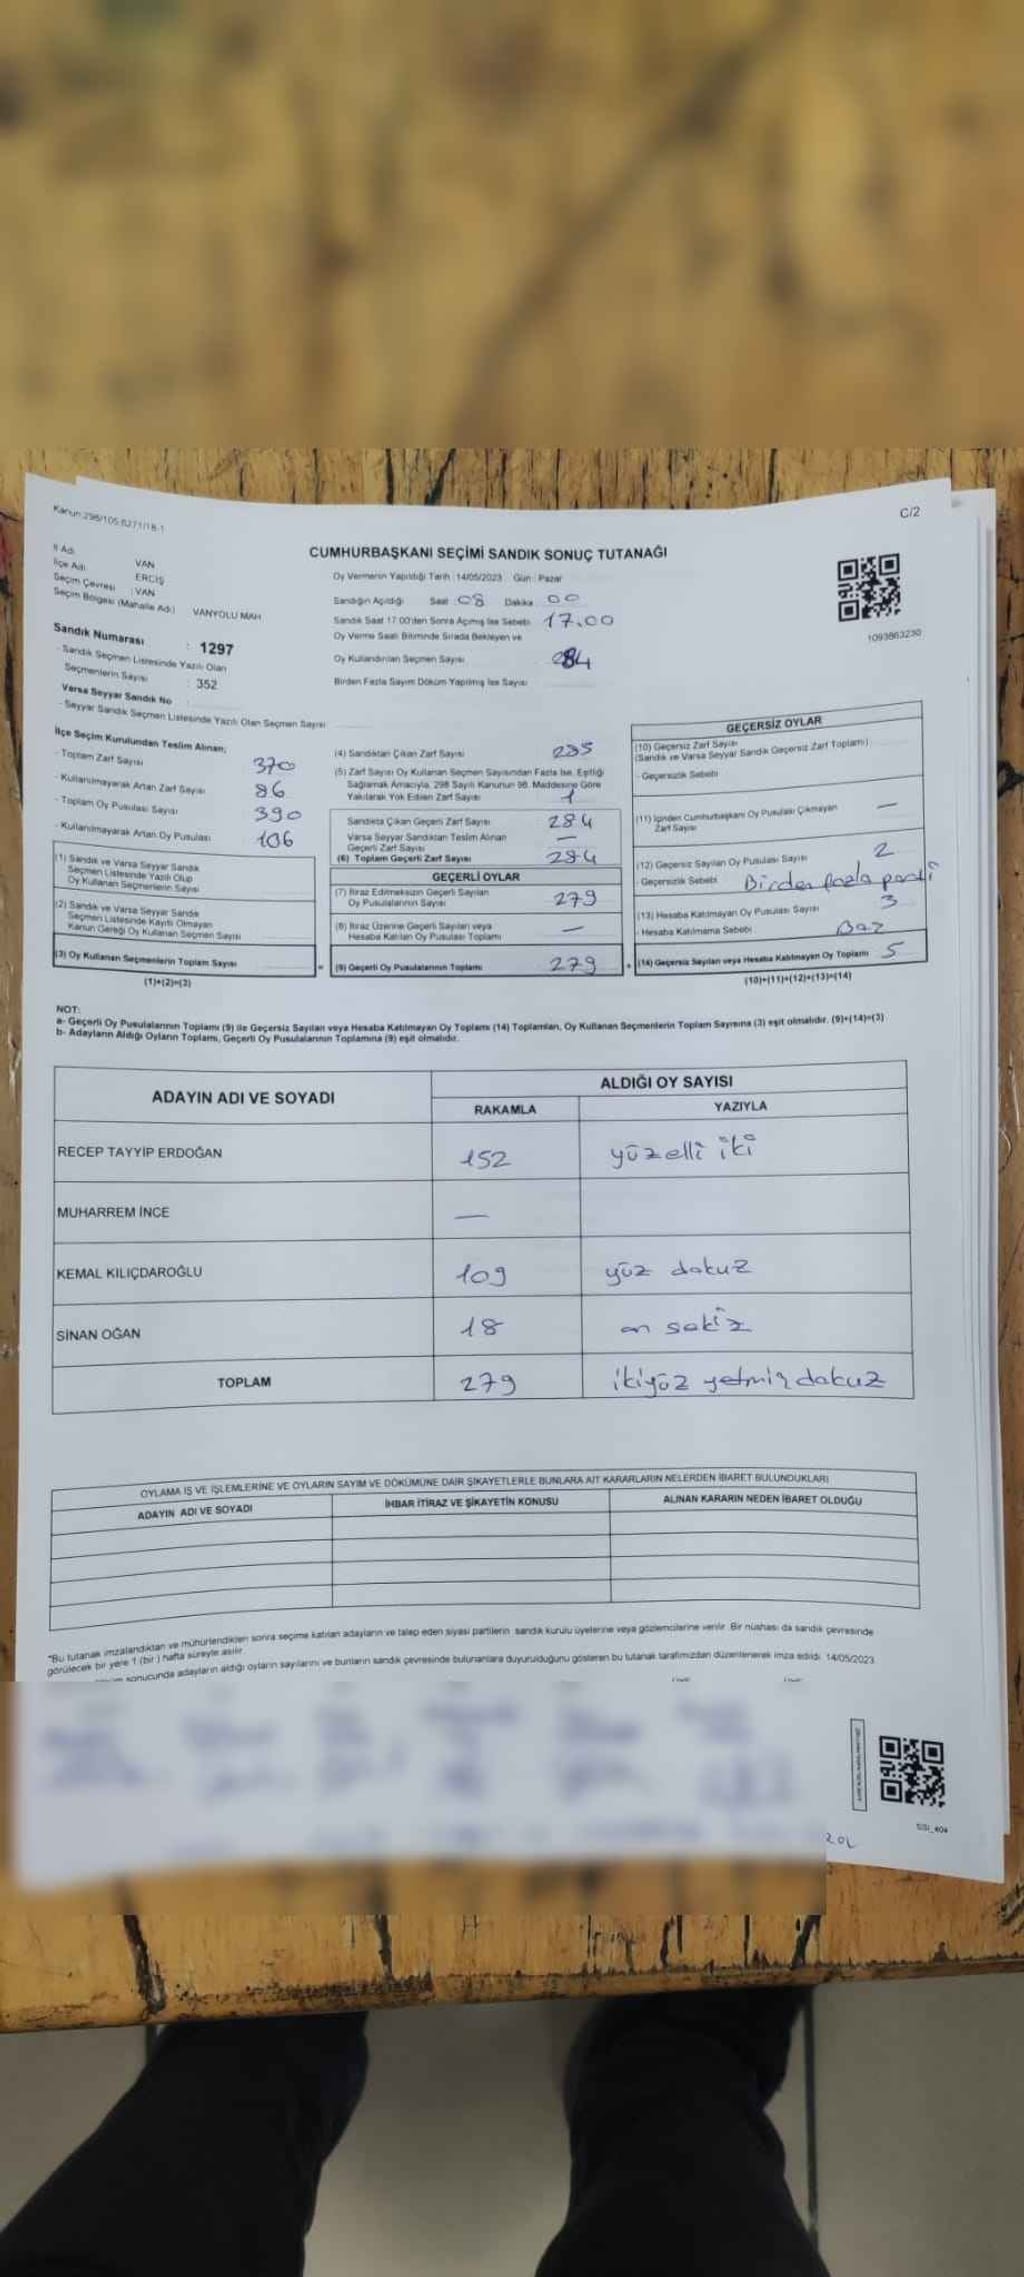 Kanun:298/105,6271/18-1
C/2
CUMHURBAŞKANI SEÇİMİ SANDIK SONUÇ TUTANAĞI
İl Adı : VAN
İlçe Adı : ERCİŞ
Seçim Çevresi : VAN
Seçim Bölgesi (Mahalle Adı) VANYOLU MAH
Sandık Numarası : 1297
- Sandık Seçmen Listesinde Yazılı Olan
Seçmenlerin Sayısı : 352
Varsa Seyyar Sandık No
- Seyyar Sandık Seçmen Listesinde Yazılı Olan Seçmen Sayısı
Oy Vermenin Yapıldığı Tarih :14/05/2023 Gün : Pazar
Sandığın Açıldığı Saat 08 Dakika 00
Sandık Saat 17.00'den Sonra Açılmış İse Sebebi 17.00
Oy Verme Saati Bitiminde Sırada Bekleyen ve
Oy Kullandırılan Seçmen Sayısı 284
Birden Fazla Sayım Döküm Yapılmış İse Sayısı
1093863230
İlçe Seçim Kurulundan Teslim Alınan;
- Toplam Zarf Sayısı 370
- Kullanılmayarak Artan Zarf Sayısı 86
- Toplam Oy Pusulası Sayısı 390
- Kullanılmayarak Artan Oy Pusulası 106
(1) Sandık ve Varsa Seyyar Sandık
Seçmen Listesinde Yazılı Olup
Oy Kullanan Seçmenlerin Sayısı
(2) Sandık ve Varsa Seyyar Sandık
Seçmen Listesinde Kayıtlı Olmayan
Kanun Gereği Oy Kullanan Seçmen Sayısı
(3) Oy Kullanan Seçmenlerin Toplam Sayısı
(1)+(2)=(3)
(4) Sandıktan Çıkan Zarf Sayısı 285
(5) Zarf Sayısı Oy Kullanan Seçmen Sayısından Fazla İse, Eşitliği
Sağlamak Amacıyla, 298 Sayılı Kanunun 98. Maddesine Göre
Yakılarak Yok Edilen Zarf Sayısı 1
Sandıkta Çıkan Geçerli Zarf Sayısı 284
Varsa Seyyar Sandıktan Teslim Alınan
Geçerli Zarf Sayısı —
(6) Toplam Geçerli Zarf Sayısı 284
GEÇERLİ OYLAR
(7) İtiraz Edilmeksizin Geçerli Sayılan
Oy Pusulalarının Sayısı 279
(8) İtiraz Üzerine Geçerli Sayılan veya
Hesaba Katılan Oy Pusulası Toplamı —
= (9) Geçerli Oy Pusulalarının Toplamı 279 +
GEÇERSİZ OYLAR
(10) Geçersiz Zarf Sayısı
(Sandık ve Varsa Seyyar Sandık Geçersiz Zarf Toplamı)
- Geçersizlik Sebebi
(11) İçinden Cumhurbaşkanı Oy Pusulası Çıkmayan
Zarf Sayısı —
(12) Geçersiz Sayılan Oy Pusulası Sayısı 2
- Geçersizlik Sebebi Birden fazla parti
(13) Hesaba Katılmayan Oy Pusulası Sayısı 3
- Hesaba Katılmama Sebebi
(14) Geçersiz Sayılan veya Hesaba Katılmayan Oy Toplamı 5
(10)+(11)+(12)+(13)=(14)
NOT:
a- Geçerli Oy Pusulalarının Toplamı (9) ile Geçersiz Sayılan veya Hesaba Katılmayan Oy Toplamı (14) Toplamları, Oy Kullanan Seçmenlerin Toplam Sayısına (3) eşit olmalıdır. (9)+(14)=(3)
b- Adayların Aldığı Oyların Toplamı, Geçerli Oy Pusulalarının Toplamına (9) eşit olmalıdır.
ADAYIN ADI VE SOYADI
ALDIĞI OY SAYISI
RAKAMLA YAZIYLA
RECEP TAYYİP ERDOĞAN 152 yüzelli iki
MUHARREM İNCE —
KEMAL KILIÇDAROĞLU 109 yüz dokuz
SİNAN OĞAN 18 on sekiz
TOPLAM 279 ikiyüz yetmiş dokuz
OYLAMA İŞ VE İŞLEMLERİNE VE OYLARIN SAYIM VE DÖKÜMÜNE DAİR ŞİKAYETLERLE BUNLARA AİT KARARLARIN NELERDEN İBARET BULUNDUKLARI
ADAYIN ADI VE SOYADI İHBAR İTİRAZ VE ŞİKAYETİN KONUSU ALINAN KARARIN NEDEN İBARET OLDUĞU
*Bu tutanak imzalandıktan ve mühürlendikten sonra seçime katılan adayların ve talep eden siyasi partilerin sandık kurulu üyelerine veya gözlemcilerine verilir. Bir nüshası da sandık çevresinde
görülecek bir yere 1 (bir ) hafta süreyle asılır.
sonucunda adayların aldığı oyların sayılarını ve bunların sandık çevresinde bulunanlara duyurulduğunu gösteren bu tutanak tarafımızdan düzenlenerek imza edildi. 14/05/2023